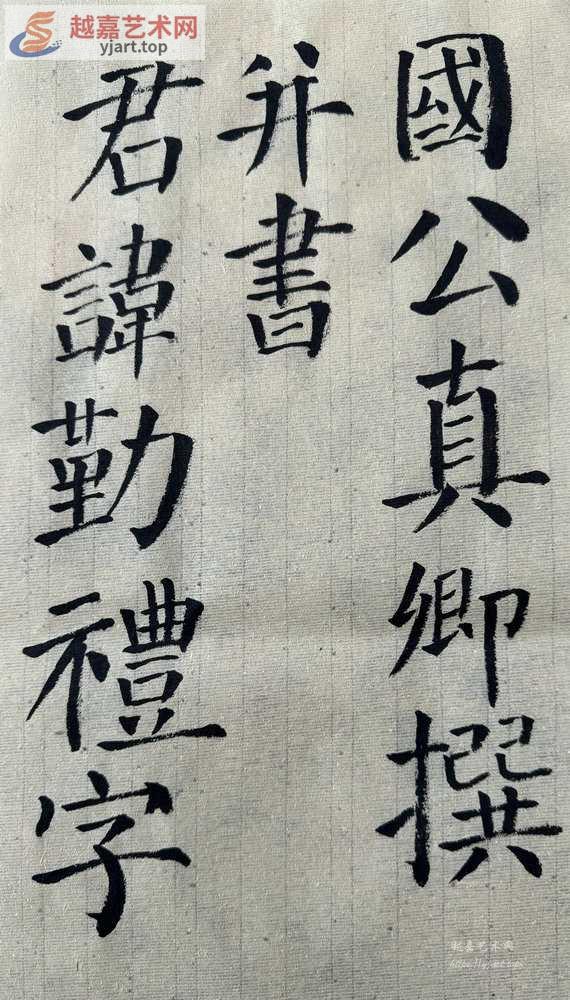 越嘉艺术网
yjart.top
國公真卿撰
并書
君諱勤禮字
越嘉艺术网
https://yjart.top/